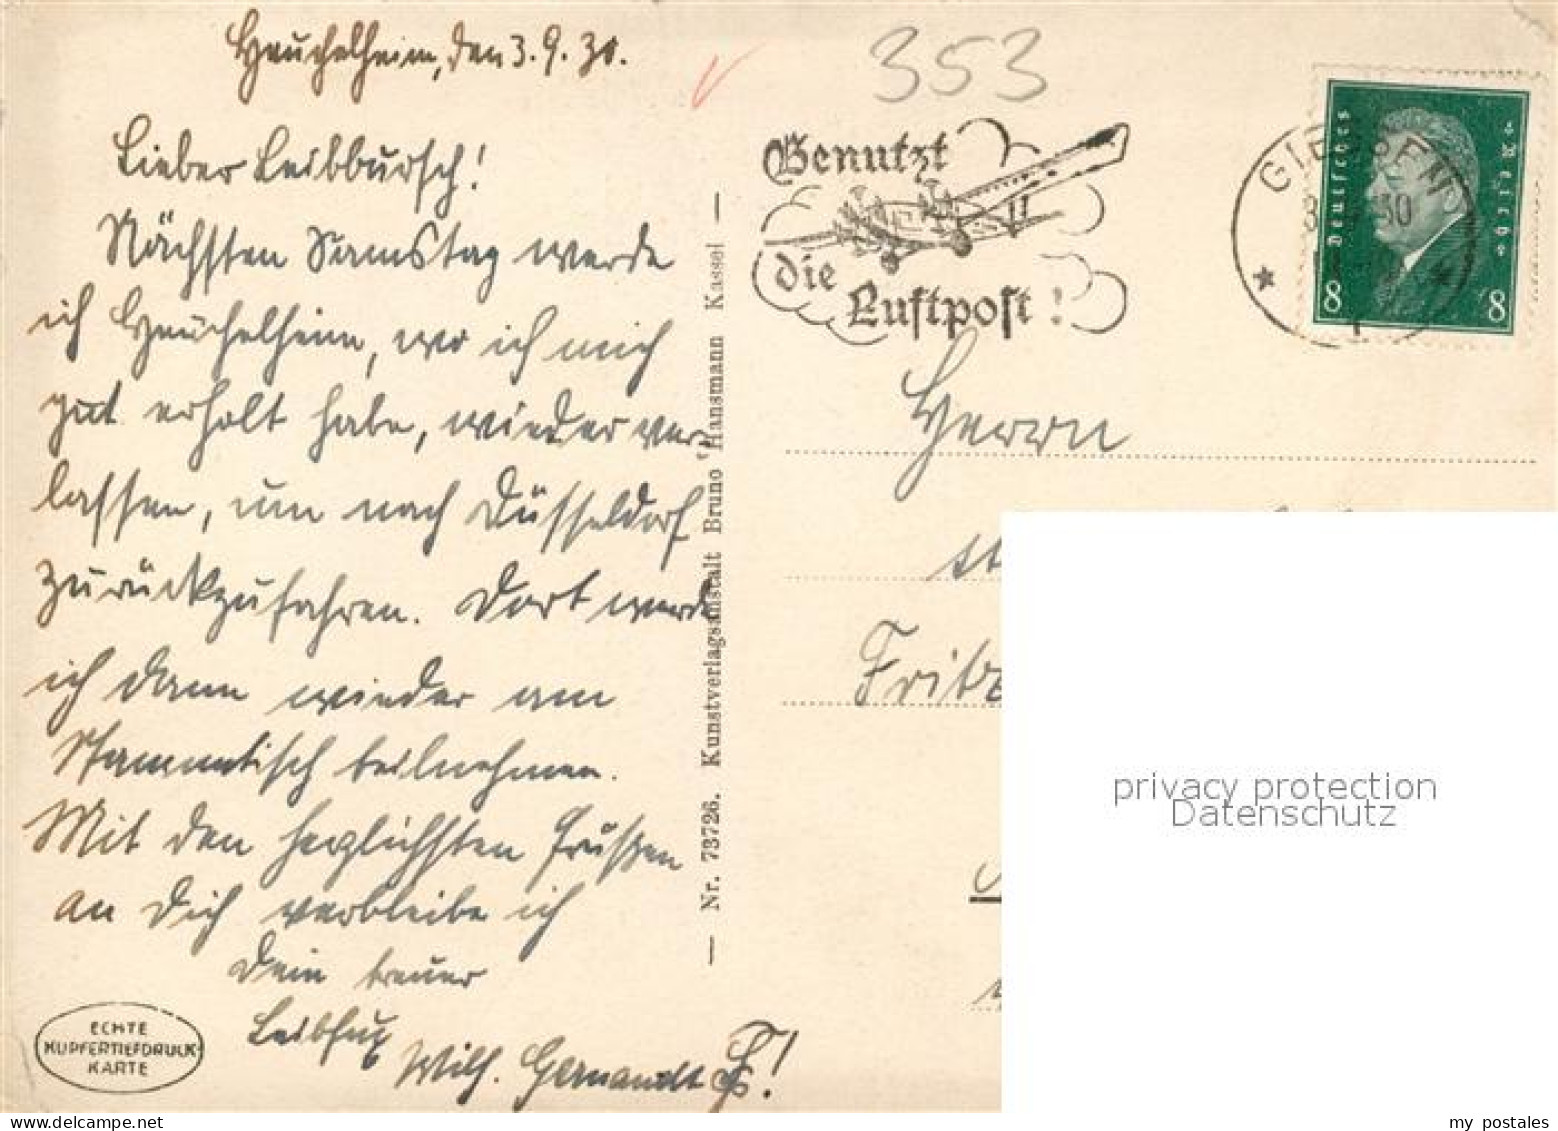 Heuchelheim, den 3.9.30.
Lieber Leibbursch!
Nächsten Samstag werde
ich Heuchelheim, wo ich mich
gut erholt habe, wieder ver-
lassen, um nach Düsseldorf
zurückzufahren. Dort werde
ich dann wieder am
Stammtisch teilnehmen.
Mit den herzlichsten Grüßen
an Dich verbleibe ich
Dein treuer
Leibfux
Wilh. Gernandt
ECHTE
KUPFERTIEFDRUCK-
KARTE
— Nr. 73726. Kunstverlagsanstalt Bruno Hansmann Kassel —
353
Benutzt
die
Luftpost!
GIESSEN
30
Deutsches
Reich
8 8
Herrn
Fritz
privacy protection
Datenschutz
my postales